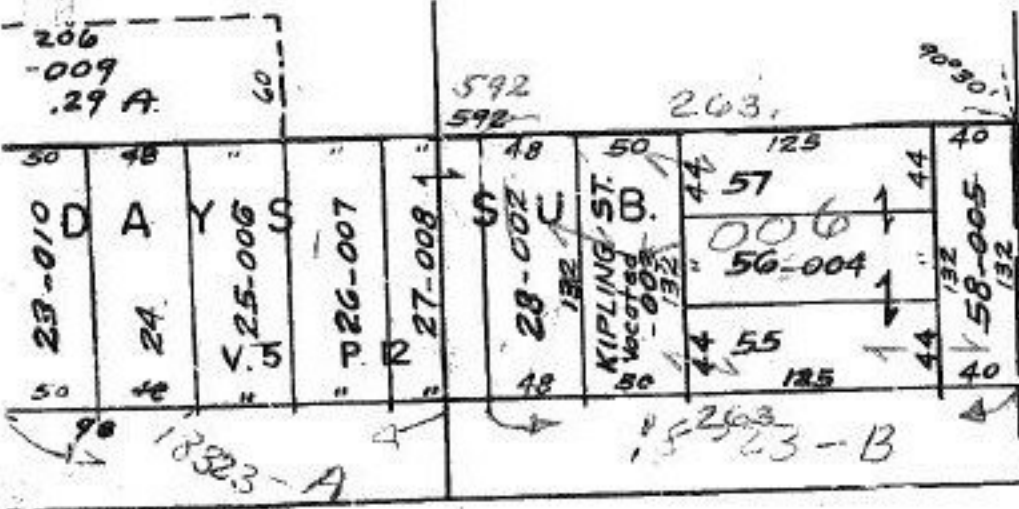 206
-009
.29 A.
60
592
592
263.
90°30'
50 48 " " " 48 50 125 40
DAYS SUB.
23-010
24
25-006
26-007
27-008
28-002
132
KIPLING ST.
Vacated
-003
132
44 57 44
006
" 56-004 "
44 55 44
132
58-005
132
V.5 P.12
50 48 " " " 48 50 125 40
98
18323-A
263
23-B